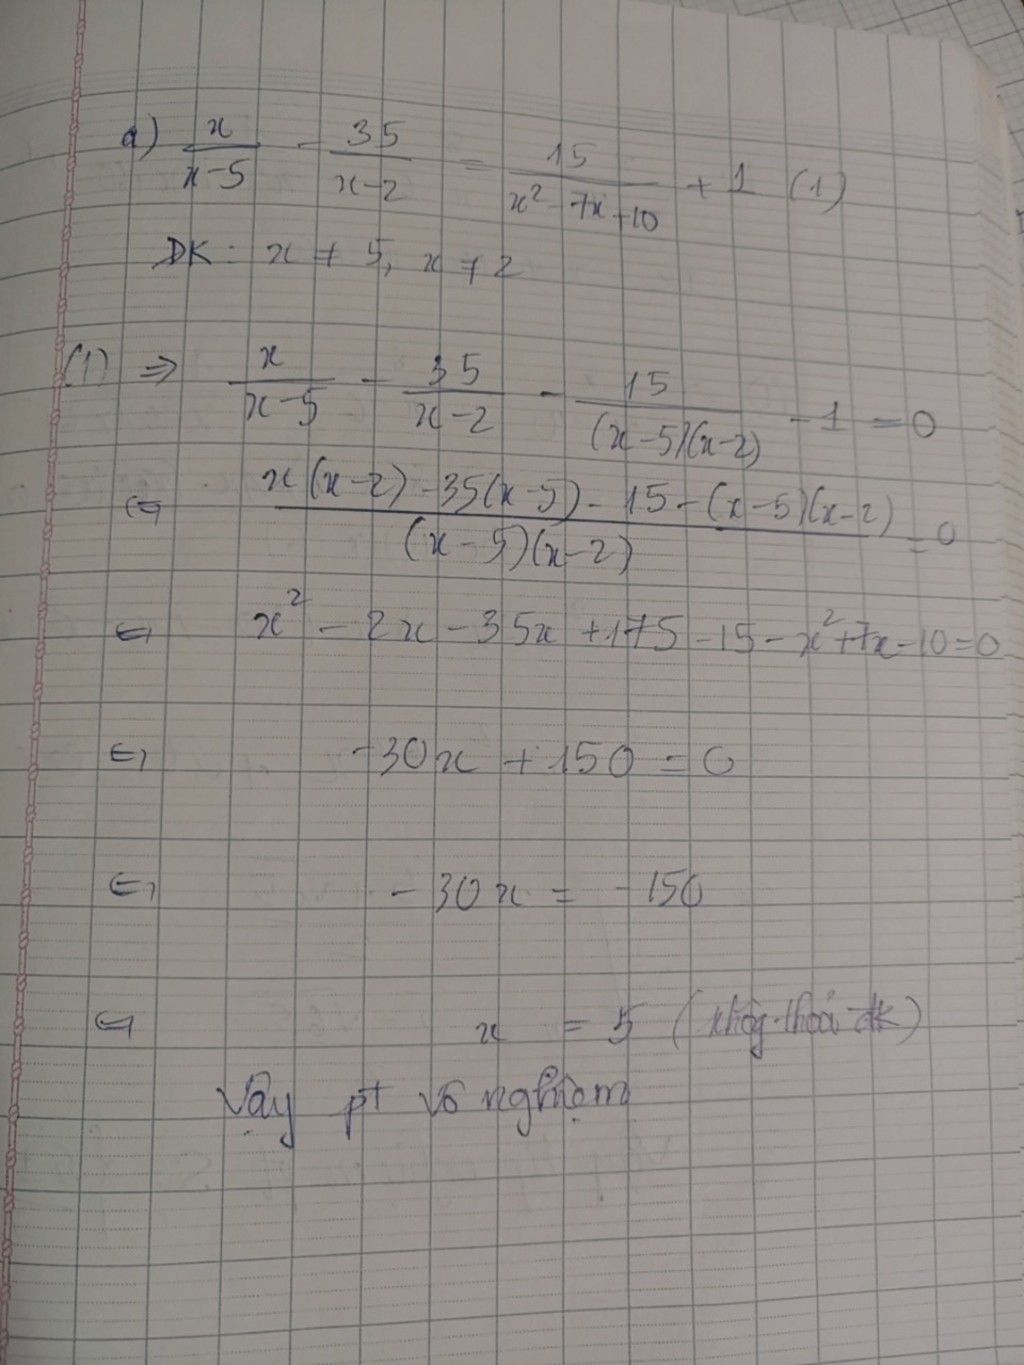 a) x/(x-5) - 35/(x-2) = 15/(x² - 7x+10) + 1 (1)
ĐK: x ≠ 5, x ≠ 2
(1) ⇒ x/(x-5) - 35/(x-2) - 15/((x-5)(x-2)) - 1 = 0
⇔ (x(x-2) - 35(x-5) - 15 - (x-5)(x-2))/((x-5)(x-2)) = 0
⇔ x² - 2x - 35x + 175 - 15 - x² + 7x - 10 = 0
⇔ -30x + 150 = 0
⇔ -30x = -150
⇔ x = 5 (không thoả đk)
Vậy pt vô nghiệm